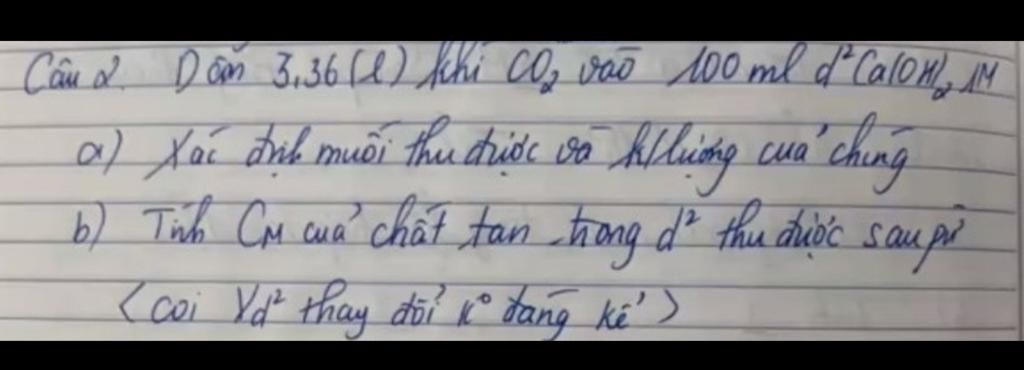 Câu 2. Dẫn 3,36 (l) khí CO₂ vào 100 ml d² Ca(OH)₂ 1M
a) Xác định muối thu được và k/lượng của chúng
b) Tính CM của chất tan trong d² thu được sau pứ
< coi Vd² thay đổi k° đáng kể >